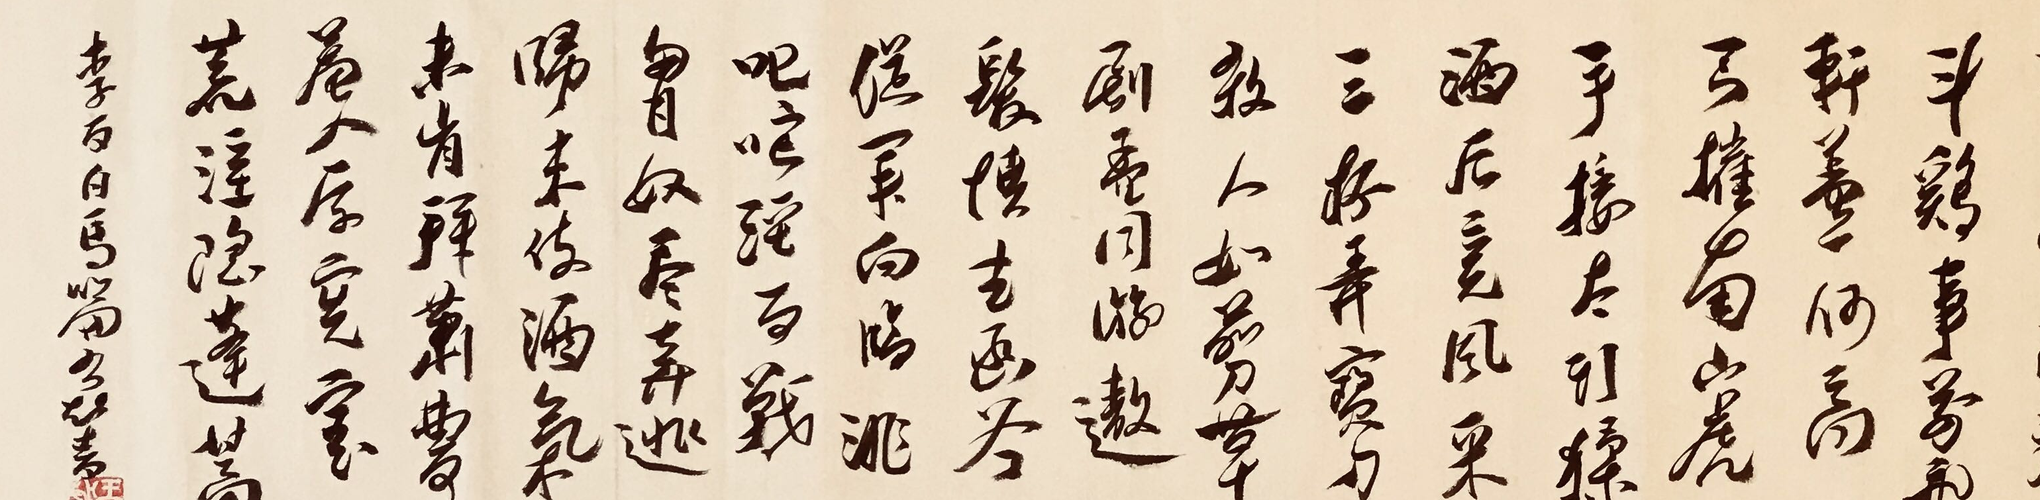 斗鷄事萬乘
軒蓋一何高
弓摧南山虎
手接太行猱
酒后竞風采
三杯弄寶刀
殺人如剪草
劇孟同游遨
發憤去函谷
從軍向臨洮
叱咤經百戰
匈奴尽奔逃
歸来使酒氣
未肯拜蕭曹
羞入原憲室
荒淫隐蓬蒿
李白白馬篇